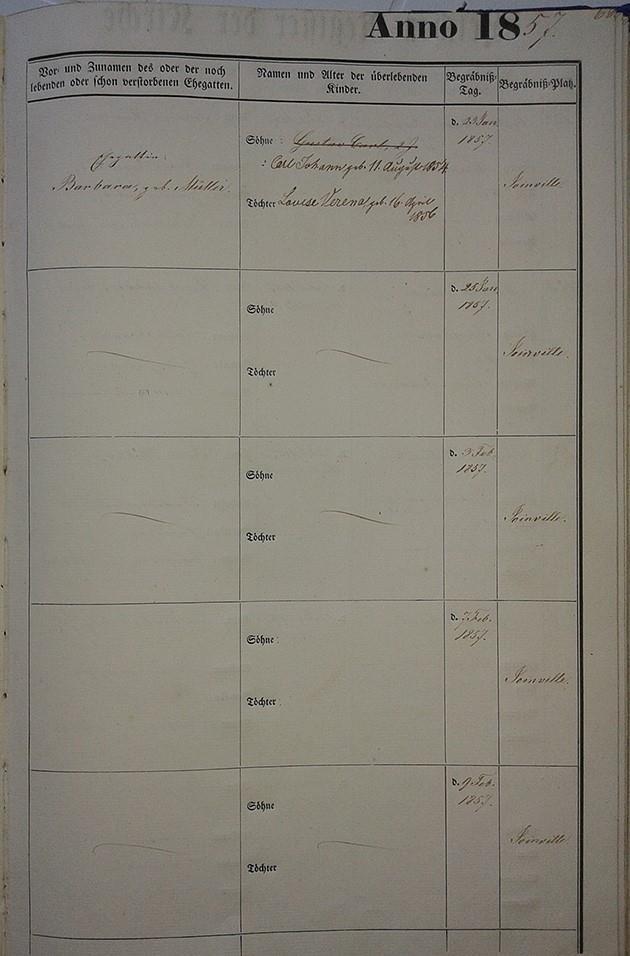 Anno 1857.
Vor- und Zunamen des oder der noch
lebenden oder schon verstorbenen Ehegatten.
Namen und Alter der überlebenden
Kinder.
Begräbniß-
Tag.
Begräbniß-Platz.
Ehegattin:
Barbara, geb. Müller.
Söhne : Gustav Carl,
: Carl Johann, geb. 11. August 1854
Töchter Louise Verena, geb. 16. April
1856
d. 23 Jan.
1857.
Joinville.
Söhne
Töchter
d. 25 Jan.
1857.
Joinville.
Söhne
Töchter
d. 3 Feb.
1857.
Joinville.
Söhne
Töchter
d. 7 Feb.
1857.
Joinville.
Söhne
Töchter
d. 9 Feb.
1857.
Joinville